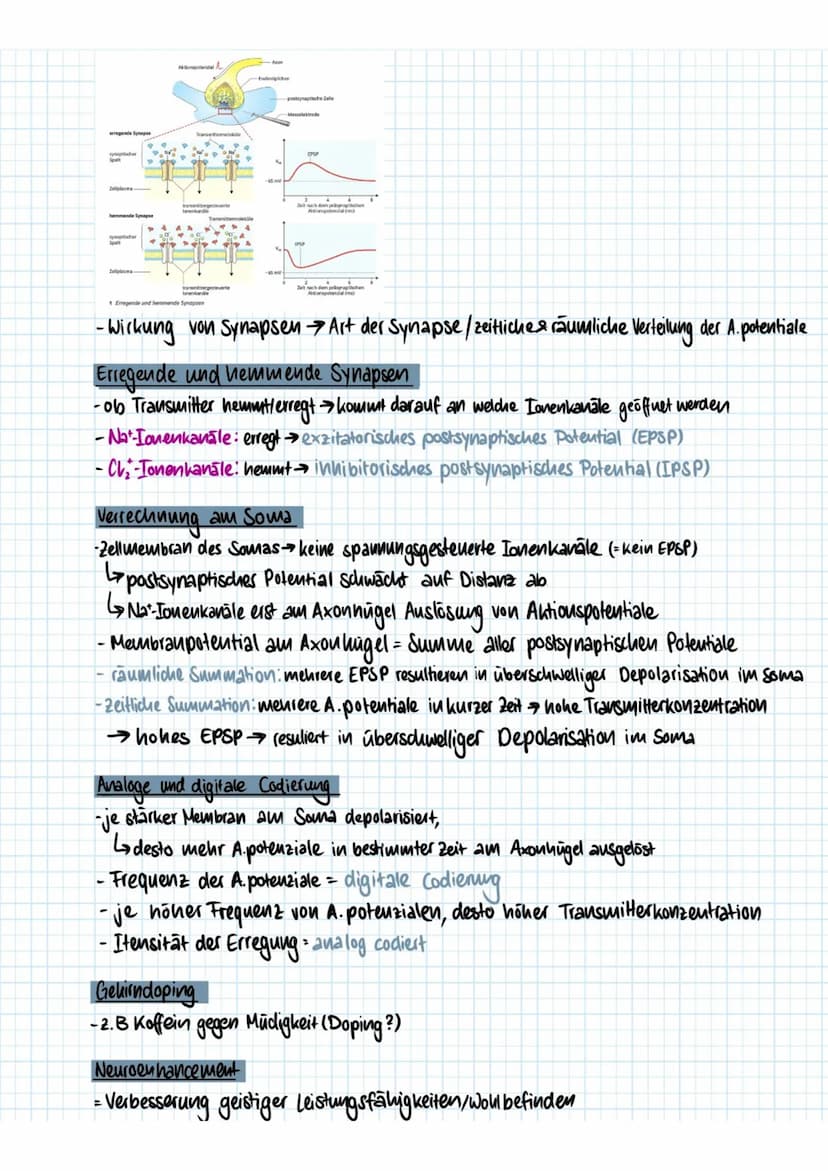 Aktionspotenzial
Axon
Endknöpfchen
postsynaptische Zelle
Messelektrode
erregende Synapse
Transmittermoleküle
synaptischer Spalt
Na⁺ Na⁺ Na⁺
EPSP
-65 mV
Zellplasma
transmittergesteuerte Ionenkanäle
0 2 4 6 8
Zeit nach dem präsynaptischen Aktionspotenzial (ms)
hemmende Synapse
Transmittermoleküle
synaptischer Spalt
Cl⁻ Cl⁻ Cl⁻
IPSP
-65 mV
Zellplasma
transmittergesteuerte Ionenkanäle
0 2 4 6 8
Zeit nach dem präsynaptischen Aktionspotenzial (ms)
1 Erregende und hemmende Synapsen
- Wirkung von Synapsen → Art der Synapse/zeitliche & räumliche Verteilung der A.potentiale
Erregende und hemmende Synapsen
- ob Transmitter hemmt/erregt → kommt darauf an welche Ionenkanäle geöffnet werden
- Na⁺-Ionenkanäle: erregt → exzitatorisches postsynaptisches Potential (EPSP)
- Cl₂⁺-Ionenkanäle: hemmt → inhibitorisches postsynaptisches Potential (IPSP)
Verrechnung am Soma
- Zellmembran des Somas → keine spannungsgesteuerte Ionenkanäle (= kein EPSP)
↳ postsynaptisches Potential schwächt auf Distanz ab
↳ Na⁺-Ionenkanäle erst am Axonhügel Auslösung von Aktionspotentiale
- Membranpotential am Axonhügel = Summe aller postsynaptischen Potentiale
- räumliche Summation: mehrere EPSP resultieren in überschwelliger Depolarisation im Soma
- zeitliche Summation: mehrere A.potentiale in kurzer Zeit → hohe Transmitterkonzentration
→ hohes EPSP → resuliert in überschwelliger Depolarisation im Soma
Analoge und digitale Codierung
- je stärker Membran am Soma depolarisiert,
↳ desto mehr A.potenziale in bestimmter Zeit am Axonhügel ausgelöst
- Frequenz der A.potenziale = digitale Codierung
- je höher Frequenz von A.potenzialen, desto höher Transmitterkonzentration
- Itensität der Erregung = analog codiert
Gehirndoping
- z.B Koffein gegen Müdigkeit (Doping?)
Neuroenhancement
= Verbesserung geistiger Leistungsfähigkeiten/Wohlbefinden